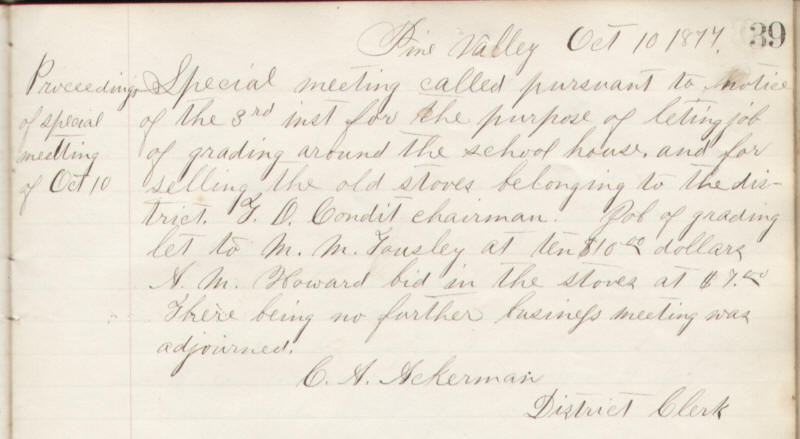 39
Pine Valley Oct 10 1877.
Proceedings
of special
meetting
of Oct 10
Special meeting called pursuant to notice
of the 3rd inst for the purpose of leting job
of grading around the school house, and for
selling the old stoves belonging to the dis-
trict. F. D. Condit chairman. Job of grading
let to M. M. Tousley at ten $10.00 dollars
A. M. Howard bid in the stoves at $7.00
There being no further business meeting was
adjourned.
C. A. Ackerman
District Clerk